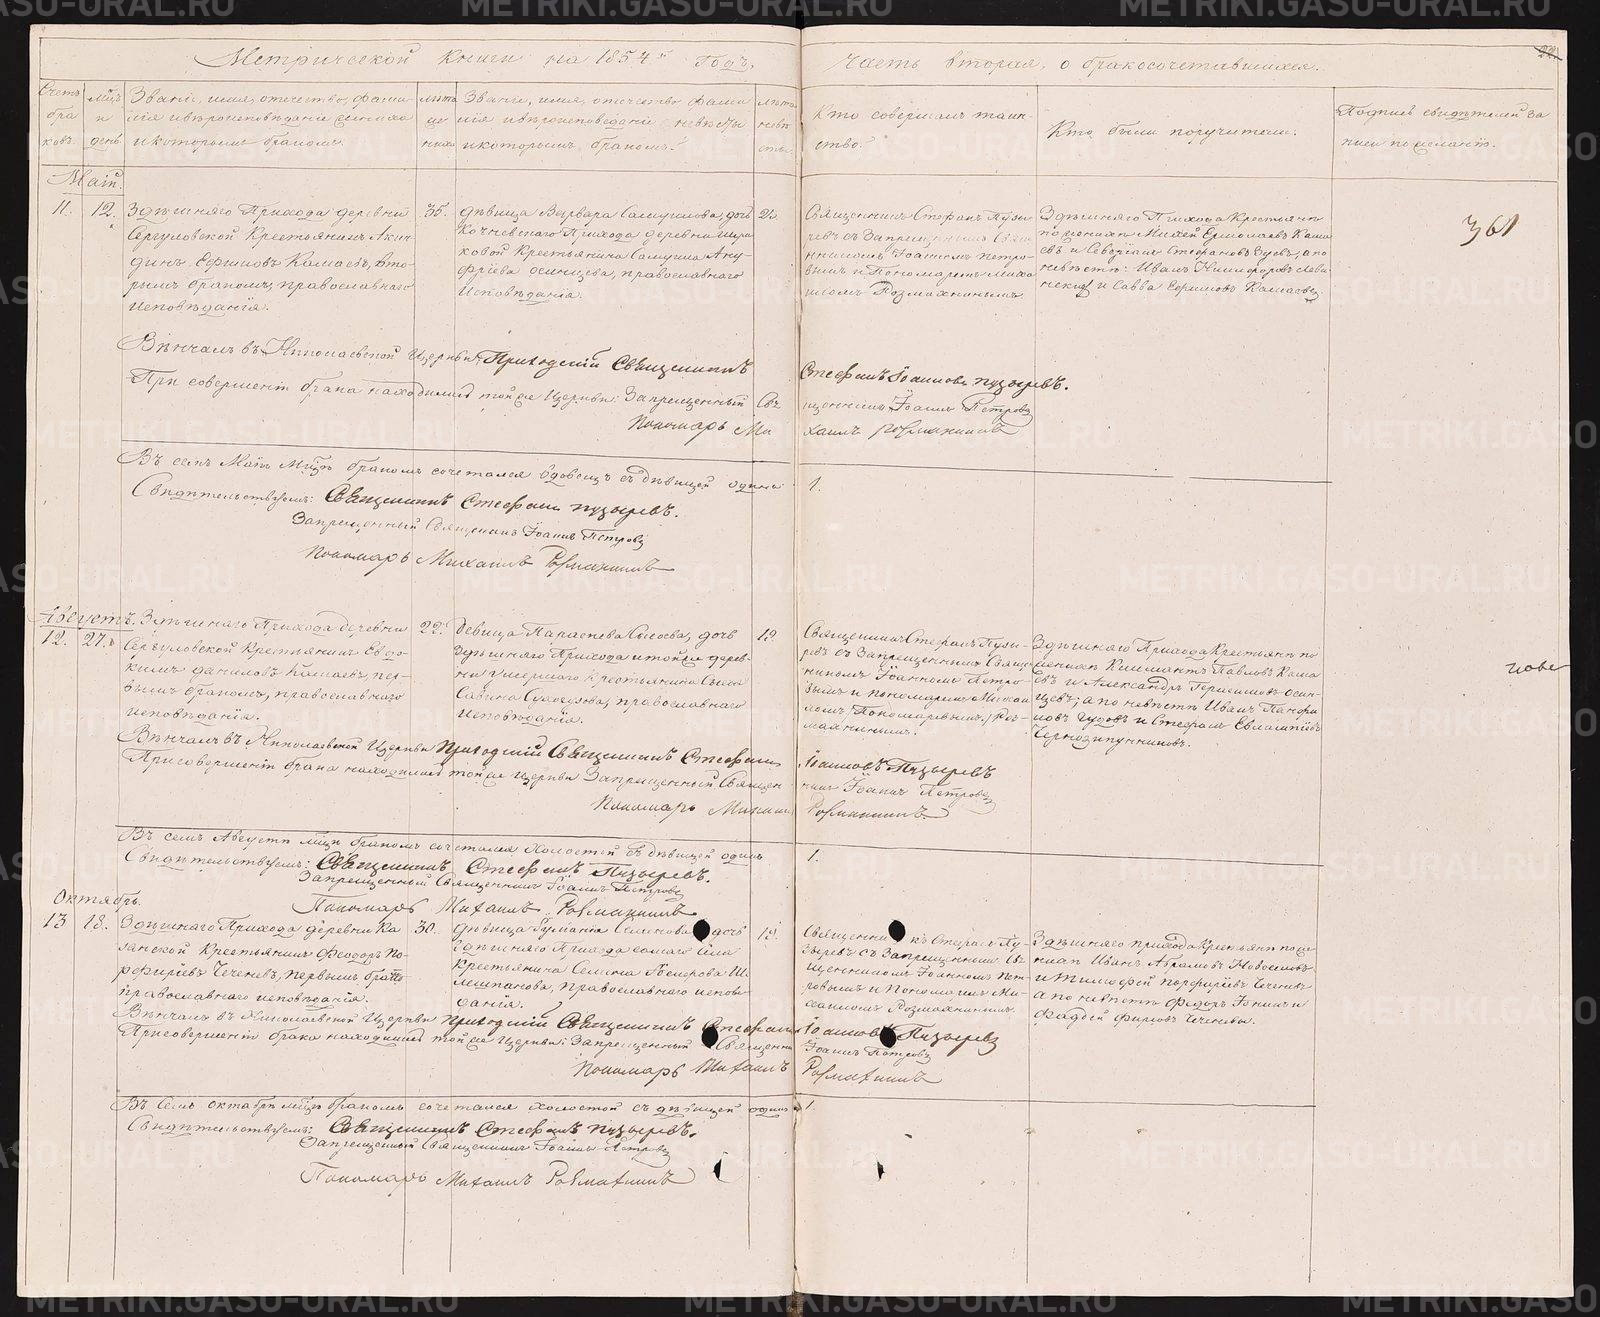 Метрической книги на 1854й Годъ, Часть вторая, о бракосочетавшихся.
Счетъ браковъ.
Мѣсяцъ и день.
Званіе, имя, отчество, фамилія и вѣроисповѣданіе жениха и которымъ бракомъ.
лѣта жениха
Званіе, имя, отчество, фамилія и вѣроисповѣданіе невѣсты и которымъ бракомъ.
лѣта невѣсты.
Кто совершалъ таинство.
Кто были поручители.
Подпись свидѣтелей записи по желанію.
Май.
11. 12.
Здѣшняго Прихода деревни
Сергуловской Крестьянинъ Акин-
динъ Ефимовъ Камаевъ, вто-
рымъ бракомъ, православнаго
исповѣданія.
35.
дѣвица Варвара Самуилова, дочь
Прихода деревни
Крестьянина Самуила Ану-
фріева Осинцева, православнаго
Исповѣданія.
Священникъ Стефанъ Пузы-
ревъ съ Запрещеннымъ Свящ-
енникомъ Іоанномъ Петро-
вымъ и Пономаремъ Миха-
иломъ Розмахнинымъ
Здѣшняго Прихода Крестьяне
по женихѣ Михей Ермолаевъ Кама-
евъ и Стефановъ а по
невѣстѣ: Иванъ Никифоровъ
и Савва Ефимовъ Камаевъ
361
Вѣнчалъ въ Николаевской Церкви Приходскій Священникъ Стефанъ Іоанновъ Пузыревъ.
При совершеніи брака находились той же Церкви: Запрещенный Священникъ Іоаннъ Петровъ
Пономарь Михаилъ Розмахнинъ
Въ семъ Маѣ мѣсяцѣ бракомъ сочетался вдовецъ съ дѣвицей одинъ 1.
Свидѣтельствуемъ: Священникъ Стефанъ Пузыревъ.
Запрещенный Священникъ Іоаннъ Петровъ
Пономарь Михаилъ Розмахнинъ
Августъ.
12. 27.
Здѣшняго Прихода деревни
Сергуловской Крестьянинъ Евдо-
кимъ Даниловъ Камаевъ, пер-
вымъ бракомъ, православнаго
исповѣданія.
22.
Девица Параскева Сысоева, дочь
Здѣшняго Прихода и той же дерев-
ни умершаго Крестьянина Сысоя
Савина православнаго
исповѣданія.
19
Священникъ Стефанъ Пузы-
ревъ съ Запрещеннымъ Свяще-
нникомъ Іоанномъ Петро-
вымъ и пономаремъ Михаи-
ломъ Роз-
махнинымъ.
Здѣшняго Прихода Крестьяне по
женихѣ Климантъ Павловъ Кама-
евъ и Александръ Герасимовъ Осин-
цевъ; а по невѣстѣ Иванъ Панфи-
ловъ и Стефанъ Евлампіевъ
Чернозипунниковъ.
Вѣнчалъ въ Николаевской Церкви Приходскій Священникъ Стефанъ Іоанновъ Пузыревъ
При совершеніи брака находились той же Церкви Запрещенный Священникъ Іоаннъ Петровъ
Пономарь Михаилъ Розмахнинъ
Въ семъ Августѣ мѣсяцѣ бракомъ сочетался Холостой съ дѣвицей одинъ 1.
Свидѣтельствуемъ: Священникъ Стефанъ Пузыревъ.
Запрещенный Священникъ Іоаннъ Петровъ
Пономарь Михаилъ Розмахнинъ
Октябрь.
13 18.
Здѣшняго Прихода деревни Ка-
занской Крестьянинъ Феодоръ По-
рфирьевъ Чеченевъ, первымъ бракомъ
православнаго исповѣданія.
30.
дѣвица Семенова дочь
Здѣшняго Прихода самаго села
Крестьянина Семена
православнаго исповѣ-
данія.
19.
Священникъ Стефанъ Пу-
зыревъ съ Запрещеннымъ Свя-
щенникомъ Іоанномъ Пет-
ровымъ и Пономаремъ Ми-
хаиломъ Розмахнинымъ.
Здѣшняго прихода Крестьяне по же-
нихѣ Иванъ Абрамовъ Новоселовъ
и Тимофей Порфирьевъ Чеченевъ
а по невѣстѣ Федоръ и
Фадѣй Фирсовъ Чеченевы.
Вѣнчалъ въ Николаевской Церкви Приходскій Священникъ Стефанъ Іоанновъ Пузыревъ
При совершеніи брака находились той же Церкви: Запрещенный Священникъ Іоаннъ Петровъ
Пономарь Михаилъ Розмахнинъ
Въ семъ Октябрѣ мѣсяцѣ бракомъ сочетался холостой съ дѣвицей одинъ 1.
Свидѣтельствуемъ: Священникъ Стефанъ Пузыревъ.
Запрещенный Священникъ Іоаннъ Петровъ
Пономарь Михаилъ Розмахнинъ
METRIKI.GASO-URAL.RU